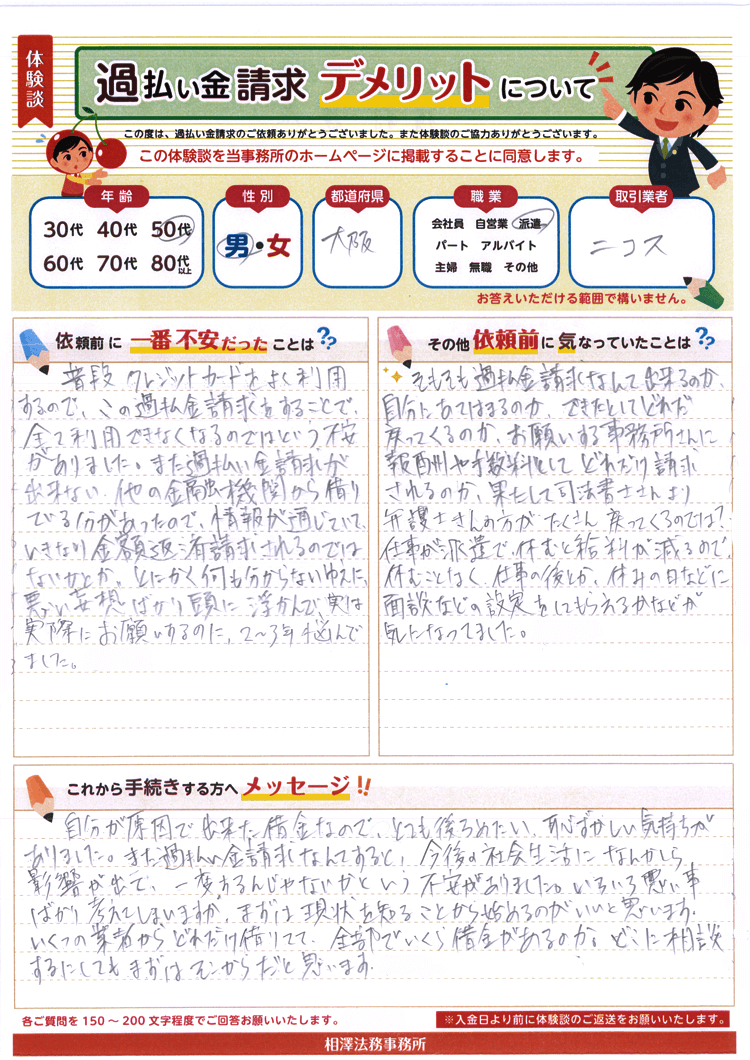 体験談
過払い金請求 デメリットについて
この度は、過払い金請求のご依頼ありがとうございました。また体験談のご協力ありがとうございます。
この体験談を当事務所のホームページに掲載することに同意します。
年齢
30代 40代 50代
60代 70代 80代以上
性別
男・女
都道府県
大阪
職業
会社員 自営業 派遣
パート アルバイト
主婦 無職 その他
取引業者
ニコス
お答えいただける範囲で構いません。
依頼前に 一番不安だった ことは??
普段クレジットカードをよく利用
するので、この過払金請求をすることで、
全て利用できなくなるのではという不安
がありました。また過払い金請求が
出来ない他の金融機関から借り
てる分があったので、情報が通じていて、
いきなり金額返済請求されるのでは
ないかとか。とにかく何も分からないゆえに、
悪い妄想ばかり頭に浮かんで、実は
実際にお願いするのに、2~3年悩んで
ました。
その他 依頼前に気なっていたことは??
そもそも過払金請求なんて出来るのか、
自分にあてはまるのか、できたとしてどれだけ
戻ってくるのか、お願いする事務所さんに
報酬や手数料として どれだけ請求
されるのか、果たして司法書士さんより
弁護士さんの方がたくさん戻ってくるのでは?
仕事が派遣で、休むと給料が減るので、
休むことなく、仕事の後とか、休みの日などに
面談などの設定をしてもらえるかなどが
気になってました。
これから手続きする方へ メッセージ!!
自分が原因で出来た借金なので、とても後ろめたい、恥ずかしい気持ちが
ありました。また過払い金請求なんてすると、今後の社会生活になんかしら
影響が出て、一変するんじゃないかという不安がありました。いろいろ悪い事
ばかり考えてしまいますが、まずは現状を知ることから始めるのがいいと思います。
いくつの業者からどれだけ借りてて、全部でいくら借金があるのか。どこに相談
するにしてもまずはそこからだと思います。
各ご質問を150~200文字程度でご回答お願いいたします。
※入金日より前に体験談のご返送をお願いいたします。
相澤法務事務所